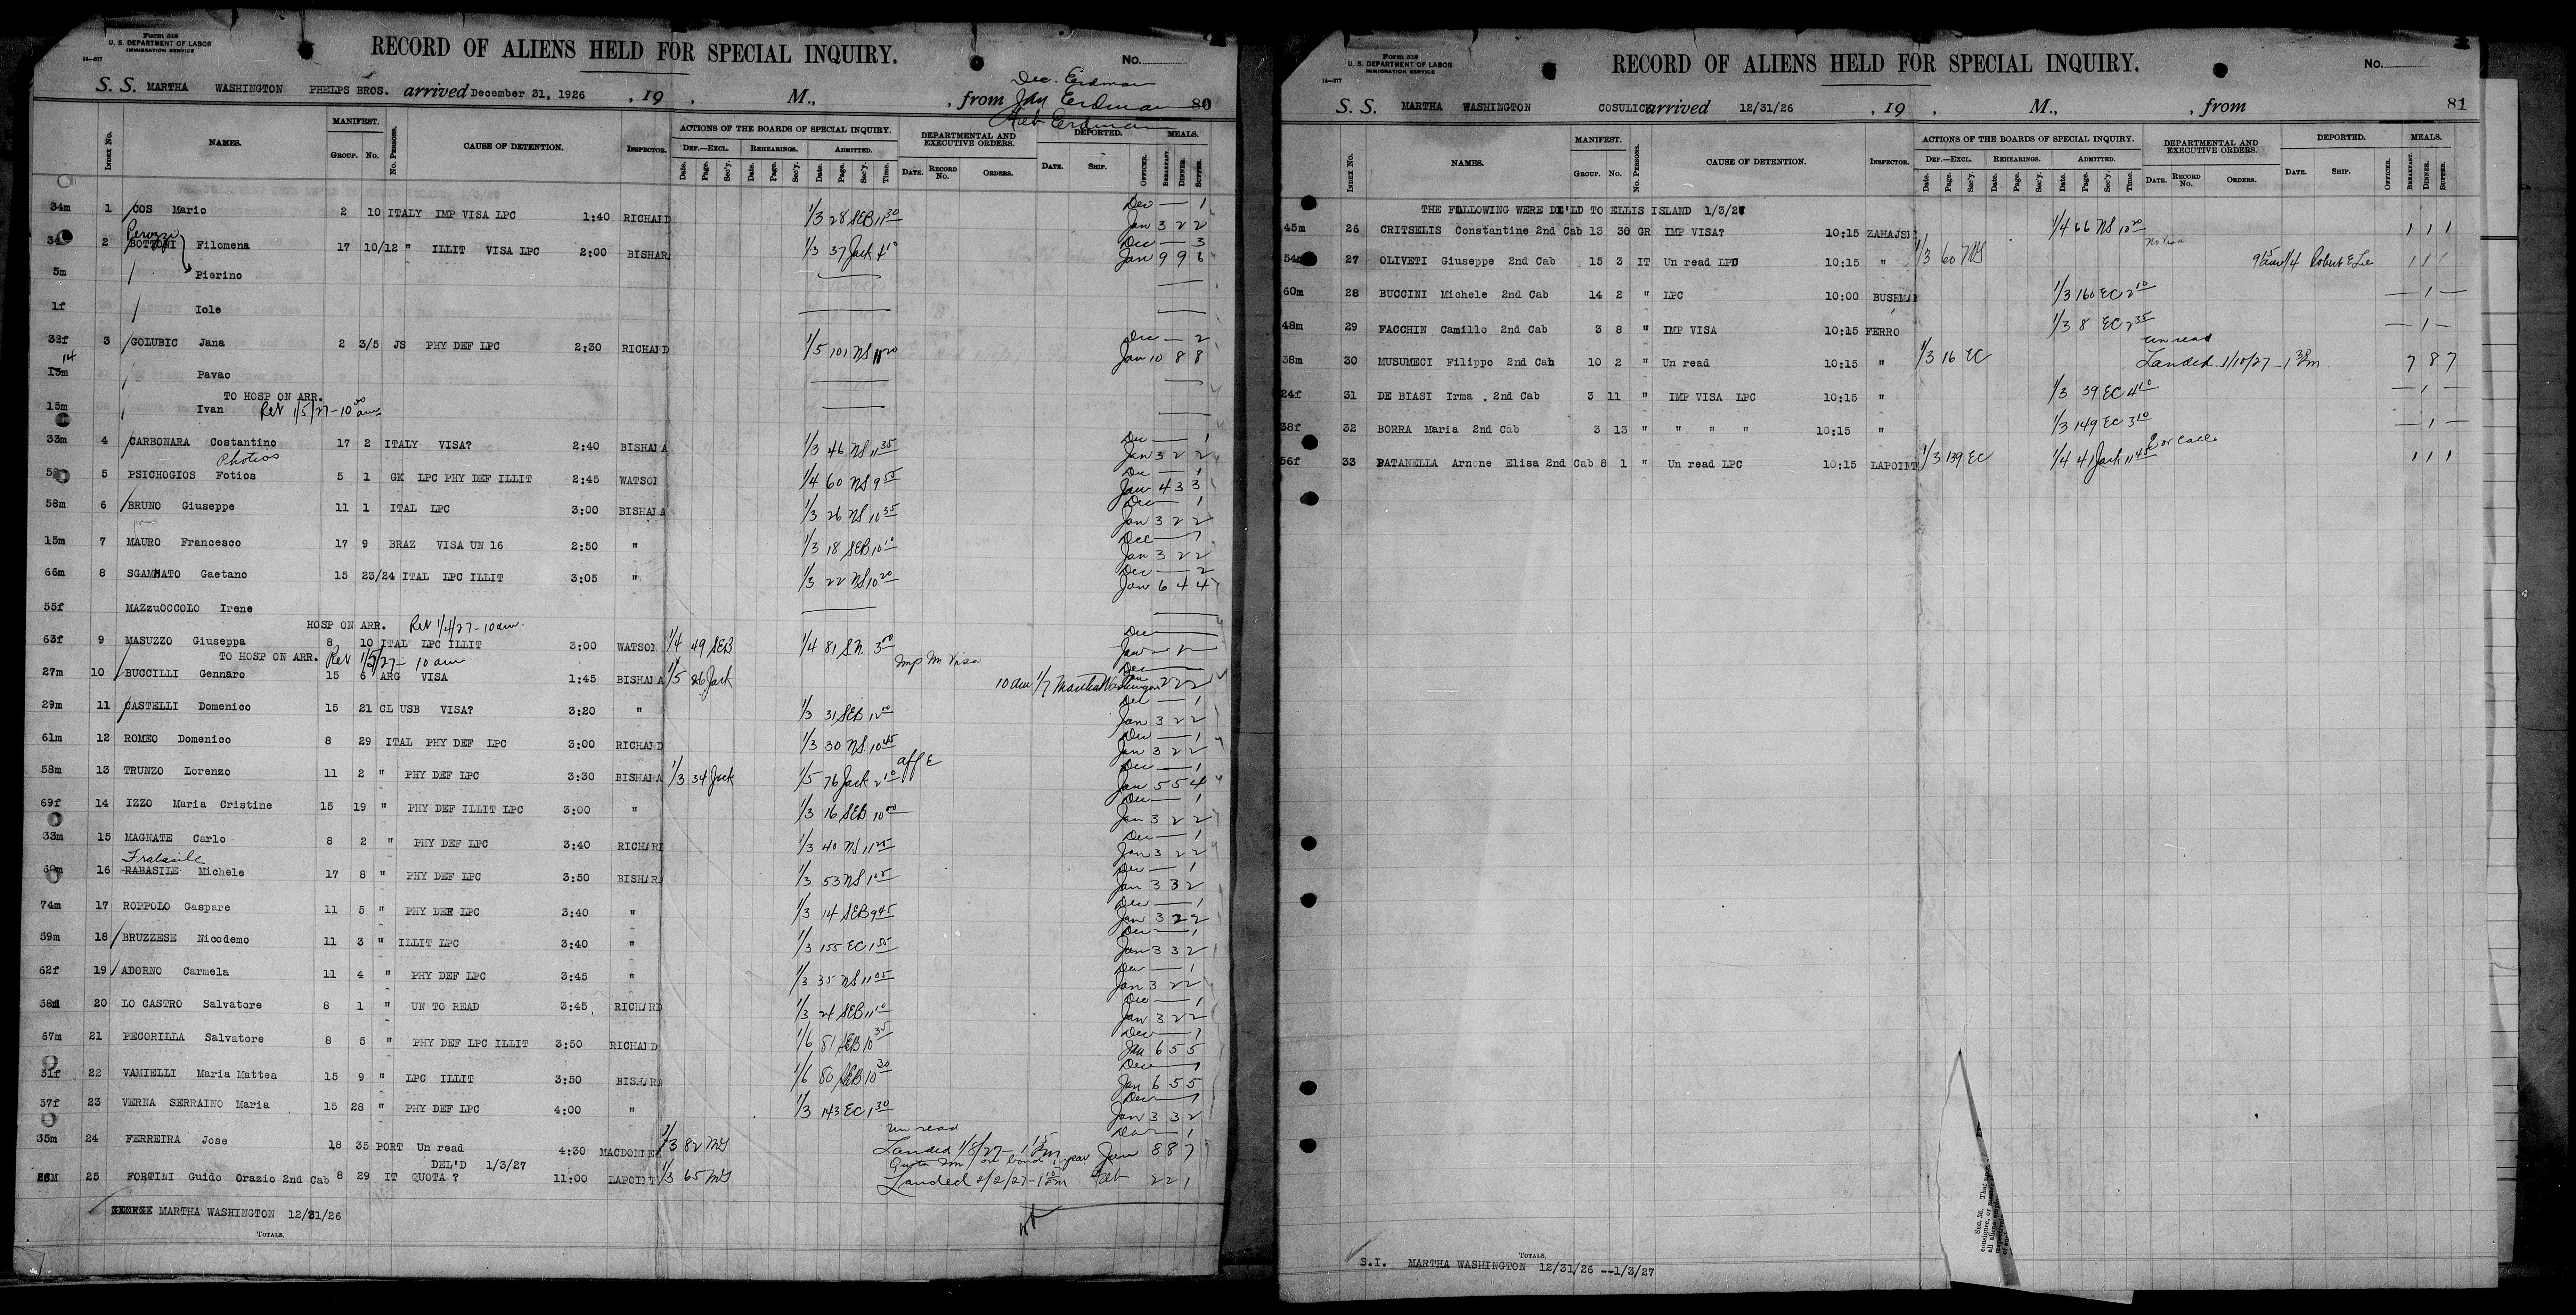 Form 518
U. S. DEPARTMENT OF LABOR
IMMIGRATION SERVICE
14—577
RECORD OF ALIENS HELD FOR SPECIAL INQUIRY.
No.
Dec. Erdman
S. S. MARTHA WASHINGTON PHELPS BROS. arrived December 31, 1926 , 19 , M., , from Jan Erdman 80
Feb Erdman
Index No. NAMES. MANIFEST. Group. No. No. Persons. CAUSE OF DETENTION. Inspector. ACTIONS OF THE BOARDS OF SPECIAL INQUIRY. DEPARTMENTAL AND EXECUTIVE ORDERS. DEPORTED. MEALS.
Def.—Excl. Rehearings. Admitted.
Date. Page. Sec'y. Date. Page. Sec'y. Date. Page. Sec'y. Time. Date. Record No. Orders. Date. Ship. Officer. Breakfast. Dinner. Supper.
34m 1 COS Mario 2 10 ITALY IMP VISA LPC 1:40 RICHARD 1/3 28 SEB 11 30 Dec — 1
Jan 3 2 2
Peruzzi
34 2 BOTTONI Filomena 17 10/12 " ILLIT VISA LPC 2:00 BISHAR 1/3 37 Jack 1 10 Dec — 3
Jan 9 9 6
5m Pierino
1f Iole
32f 3 GOLUBIC Jana 2 3/5 JS PHY DEF LPC 2:30 RICHARD 1/5 101 NS 11 20 Dec — 2
Jan 10 8 8
14
13m Pavao
TO HOSP ON ARR.
15m Ivan Ret 1/5/27 - 10 30 am
33m 4 CARBONARA Costantino 17 2 ITALY VISA? 2:40 BISHARA 1/3 46 NS 11 35 Dec — 1
Jan 3 2 2
Photios
5 PSICHOGIOS Fotios 5 1 GK LPC PHY DEF ILLIT 2:45 WATSON 1/4 60 NS 9 55 Dec — 1
Jan 4 3 3
58m 6 BRUNO Giuseppe 11 1 ITAL LPC 3:00 BISHARA 1/3 26 NS 10 35 Dec — 1
Jan 3 2 2
15m 7 MAURO Francesco 17 9 BRAZ VISA UN 16 2:50 " 1/3 18 SEB 10 10 Dec — 1
Jan 3 2 2
66m 8 SGAMMATO Gaetano 15 23/24 ITAL LPC ILLIT 3:05 " 1/3 22 NS 10 20 Dec — 2
Jan 6 4 4
55f MAZzuOCCOLO Irene
HOSP ON ARR. Ret 1/4/27 - 10 am.
63f 9 MASUZZO Giuseppa 8 10 ITAL LPC ILLIT 3:00 WATSON 1/4 49 SEB 1/4 81 SN 3 00 Dec
Jan
TO HOSP ON ARR. Ret 1/5/27 - 10 am
Imp Im Visa
27m 10 BUCCILLI Gennaro 15 6 ARG VISA 1:45 BISHARA 1/5 26 Jack 10 am 1/7 Martha Washington 2 2 2
29m 11 CASTELLI Domenico 15 21 CL USB VISA? 3:20 " 1/3 31 SEB 12 00 Dec — 1
Jan 3 2 2
61m 12 ROMEO Domenico 8 29 ITAL PHY DEF LPC 3:00 RICHARD 1/3 30 NS 10 45 Dec — 1
Jan 3 2 2
aff E
58m 13 TRUNZO Lorenzo 11 2 " PHY DEF LPC 3:30 BISHARA 1/3 34 Jack 1/5 76 Jack 2 10 Dec — 1
Jan 5 5 4
69f 14 IZZO Maria Cristine 15 19 " PHY DEF ILLIT LPC 3:00 " 1/3 16 SEB 10 00 Dec — 1
Jan 3 2 2
33m 15 MAGNATE Carlo 8 2 " PHY DEF LPC 3:40 RICHARD 1/3 40 NS 11 25 Dec — 1
Jan 3 2 2
Frabasile
16 RABASILE Michele 17 8 " PHY DEF LPC 3:50 BISHARA 1/3 53 NS 1 05 Dec — 1
Jan 3 3 2
74m 17 ROPPOLO Gaspare 11 5 " PHY DEF LPC 3:40 " 1/3 14 SEB 9 45 Dec — 1
Jan 3 2 2
59m 18 BRUZZESE Nicodemo 11 3 " ILLIT LPC 3:40 " 1/3 155 EC 1 55 Dec — 1
Jan 3 3 2
62f 19 ADORNO Carmela 11 4 " PHY DEF LPC 3:45 " 1/3 35 NS 11 05 Dec — 1
Jan 3 2 2
58m 20 LO CASTRO Salvatore 8 1 " UN TO READ 3:45 RICHARD 1/3 24 SEB 11 10 Dec — 1
Jan 3 2 2
67m 21 PECORILLA Salvatore 8 5 " PHY DEF LPC ILLIT 3:50 RICHARD 1/6 81 SEB 10 35 Dec — 1
Jan 6 5 5
51f 22 VAMIELLI Maria Mattea 15 9 " LPC ILLIT 3:50 BISHARA 1/6 80 SEB 10 30 Dec — 1
Jan 6 5 5
57f 23 VERNA SERRAINO Maria 15 28 " PHY DEF LPC 4:00 " 1/3 143 EC 1 30 Dec — 1
Jan 3 3 2
un read
35m 24 FERREIRA Jose 18 35 PORT Un read 4:30 MACDONNEL 1/3 82 MG Landed 1/8/27 - 1 15 Pm Dec — 1
Jan 8 8 7
DEL'D 1/3/27 Quota Im on bond 1 year
26M 25 FORTINI Guido Orazio 2nd Cab 8 29 IT QUOTA ? 11:00 LAPOINT 1/3 65 MG Landed 2/2/27 - 1 10 Pm Feb 2 2 1
GEORGE MARTHA WASHINGTON 12/31/26
Totals.
Form 518
U. S. DEPARTMENT OF LABOR
IMMIGRATION SERVICE
14—577
RECORD OF ALIENS HELD FOR SPECIAL INQUIRY.
No.
S. S. MARTHA WASHINGTON COSULICH arrived 12/31/26 , 19 , M., , from 81
Index No. NAMES. MANIFEST. Group. No. No. Persons. CAUSE OF DETENTION. Inspector. ACTIONS OF THE BOARDS OF SPECIAL INQUIRY. DEPARTMENTAL AND EXECUTIVE ORDERS. DEPORTED. MEALS.
Def.—Excl. Rehearings. Admitted.
Date. Page. Sec'y. Date. Page. Sec'y. Date. Page. Sec'y. Time. Date. Record No. Orders. Date. Ship. Officer. Breakfast. Dinner. Supper.
THE FOLLOWING WERE DEL'D TO ELLIS ISLAND 1/3/27
45m 26 CRITSELIS Constantine 2nd Cab 13 30 GR IMP VISA? 10:15 ZAHAJSK 1/4 66 NS 10 20 1 1 1
No Visa
54m 27 OLIVETI Giuseppe 2nd Cab 15 3 IT Un read LPC 10:15 " 1/3 60 MG 9 15 am 1/4 Robert E Lee 1 1 1
60m 28 BUCCINI Michele 2nd Cab 14 2 " LPC 10:00 BUSHMAN 1/3 160 EC 2 10 — 1 —
48m 29 FACCHIN Camillo 2nd Cab 3 8 " IMP VISA 10:15 FERRO 1/3 8 EC 2 35 — 1 —
un read
38m 30 MUSUMECI Filippo 2nd Cab 10 2 " Un read 10:15 " 1/3 16 EC Landed 1/10/27 - 1 38 Pm 7 8 7
24f 31 DE BIASI Irma 2nd Cab 3 11 " IMP VISA LPC 10:15 " 1/3 39 EC 4 10 — 1 —
38f 32 BORRA Maria 2nd Cab 3 13 " " " " 10:15 " 1/3 149 EC 3 10 — 1 —
56f 33 PATANELLA Arnone Elisa 2nd Cab 8 1 " Un read LPC 10:15 LAPOINT 1/3 139 EC 1/4 41 Jack 11 45 1 1 1
Sec. 36. That
Totals.
S.I. MARTHA WASHINGTON 12/31/26 --1/3/27